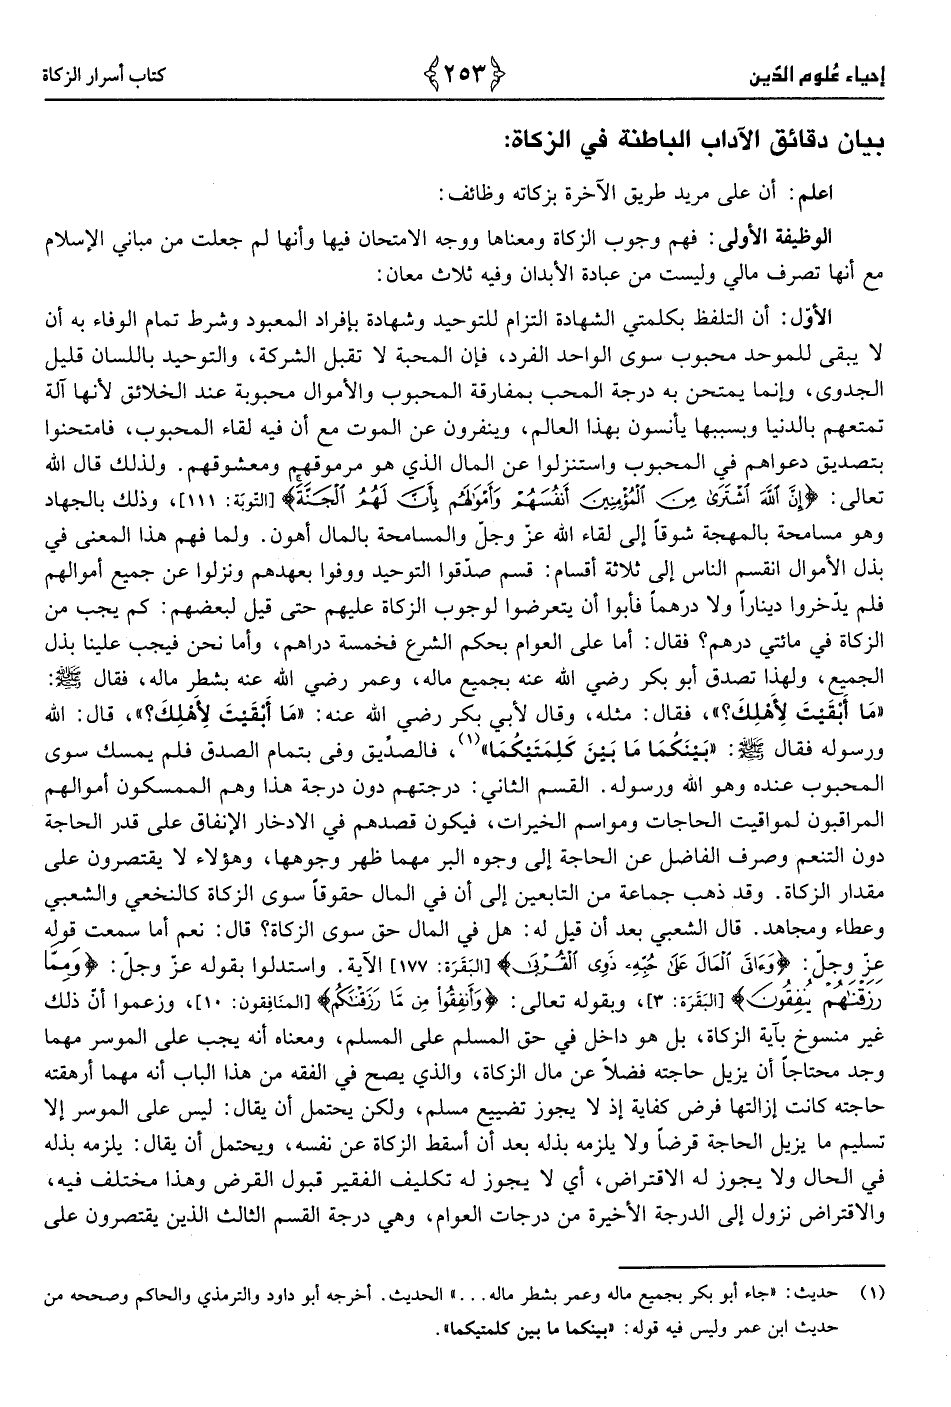 إحياء عُلوم الدّين ﴿٢٥٣﴾ كتاب أسرار الزكاة
بيان دقائق الآداب الباطنة في الزكاة:
اعلم: أن على مريد طريق الآخرة بزكاته وظائف:
الوظيفة الأولى: فهم وجوب الزكاة ومعناها ووجه الامتحان فيها وأنها لم جعلت من مباني الإسلام
مع أنها تصرف مالي وليست من عبادة الأبدان وفيه ثلاث معان:
الأوّل: أن التلفظ بكلمتي الشهادة التزام للتوحيد وشهادة بإفراد المعبود وشرط تمام الوفاء به أن
لا يبقى للموحد محبوب سوى الواحد الفرد، فإن المحبة لا تقبل الشركة، والتوحيد باللسان قليل
الجدوى، وإنما يمتحن به درجة المحب بمفارقة المحبوب والأموال محبوبة عند الخلائق لأنها آلة
تمتعهم بالدنيا وبسببها يأنسون بهذا العالم، وينفرون عن الموت مع أن فيه لقاء المحبوب، فامتحنوا
بتصديق دعواهم في المحبوب واستنزلوا عن المال الذي هو مرموقهم ومعشوقهم. ولذلك قال الله
تعالى: ﴿إِنَّ اللَّهَ اشْتَرَىٰ مِنَ الْمُؤْمِنِينَ أَنفُسَهُمْ وَأَمْوَالَهُم بِأَنَّ لَهُمُ الْجَنَّةَ﴾ [التوبَة: ١١١]، وذلك بالجهاد
وهو مسامحة بالمهجة شوقاً إلى لقاء الله عزّ وجلّ والمسامحة بالمال أهون. ولما فهم هذا المعنى في
بذل الأموال انقسم الناس إلى ثلاثة أقسام: قسم صدّقوا التوحيد ووفوا بعهدهم ونزلوا عن جميع أموالهم
فلم يدّخروا ديناراً ولا درهماً فأبوا أن يتعرضوا لوجوب الزكاة عليهم حتى قيل لبعضهم: كم يجب من
الزكاة في مائتي درهم؟ فقال: أما على العوام بحكم الشرع فخمسة دراهم، وأما نحن فيجب علينا بذل
الجميع، ولهذا تصدق أبو بكر رضي الله عنه بجميع ماله، وعمر رضي الله عنه بشطر ماله، فقال ﷺ:
«مَا أَبْقَيْتَ لِأَهْلِكَ؟»، فقال: مثله، وقال لأبي بكر رضي الله عنه: «مَا أَبْقَيْتَ لِأَهْلِكَ؟»، قال: الله
ورسوله فقال ﷺ: «بَيْنَكُمَا مَا بَيْنَ كَلِمَتَيْكُمَا»(١)، فالصدِّيق وفى بتمام الصدق فلم يمسك سوى
المحبوب عنده وهو الله ورسوله. القسم الثاني: درجتهم دون درجة هذا وهم الممسكون أموالهم
المراقبون لمواقيت الحاجات ومواسم الخيرات، فيكون قصدهم في الادخار الإنفاق على قدر الحاجة
دون التنعم وصرف الفاضل عن الحاجة إلى وجوه البر مهما ظهر وجوهها، وهؤلاء لا يقتصرون على
مقدار الزكاة. وقد ذهب جماعة من التابعين إلى أن في المال حقوقاً سوى الزكاة كالنخعي والشعبي
وعطاء ومجاهد. قال الشعبي بعد أن قيل له: هل في المال حق سوى الزكاة؟ قال: نعم أما سمعت قوله
عزّ وجلّ: ﴿وَءَاتَى الْمَالَ عَلَىٰ حُبِّهِۦ ذَوِى الْقُرْبَىٰ﴾ [البَقَرَة: ١٧٧] الآية. واستدلوا بقوله عزّ وجلّ: ﴿وَمِمَّا
رَزَقْنَاهُمْ يُنفِقُونَ﴾ [البَقَرَة: ٣]، وبقوله تعالى: ﴿وَأَنفِقُوا مِن مَّا رَزَقْنَاكُم﴾ [المنَافِقون: ١٠]، وزعموا أنّ ذلك
غير منسوخ بآية الزكاة، بل هو داخل في حق المسلم على المسلم، ومعناه أنه يجب على الموسر مهما
وجد محتاجاً أن يزيل حاجته فضلاً عن مال الزكاة، والذي يصح في الفقه من هذا الباب أنه مهما أرهقته
حاجته كانت إزالتها فرض كفاية إذ لا يجوز تضييع مسلم، ولكن يحتمل أن يقال: ليس على الموسر إلا
تسليم ما يزيل الحاجة قرضاً ولا يلزمه بذله بعد أن أسقط الزكاة عن نفسه، ويحتمل أن يقال: يلزمه بذله
في الحال ولا يجوز له الاقتراض، أي لا يجوز له تكليف الفقير قبول القرض وهذا مختلف فيه،
والاقتراض نزول إلى الدرجة الأخيرة من درجات العوام، وهي درجة القسم الثالث الذين يقتصرون على
(١) حديث: «جاء أبو بكر بجميع ماله وعمر بشطر ماله...» الحديث. أخرجه أبو داود والترمذي والحاكم وصححه من
حديث ابن عمر وليس فيه قوله: «بينكما ما بين كلمتيكما».